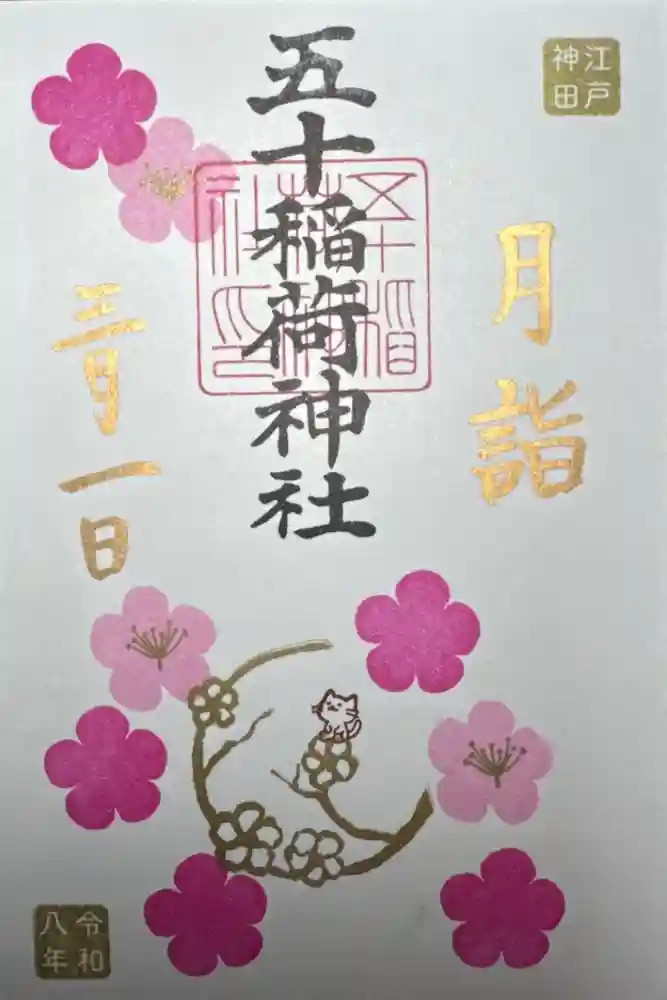 江戸
神田
月詣
五十稲荷神社
五十稲
荷神
社之印
三月一日
令和
八年